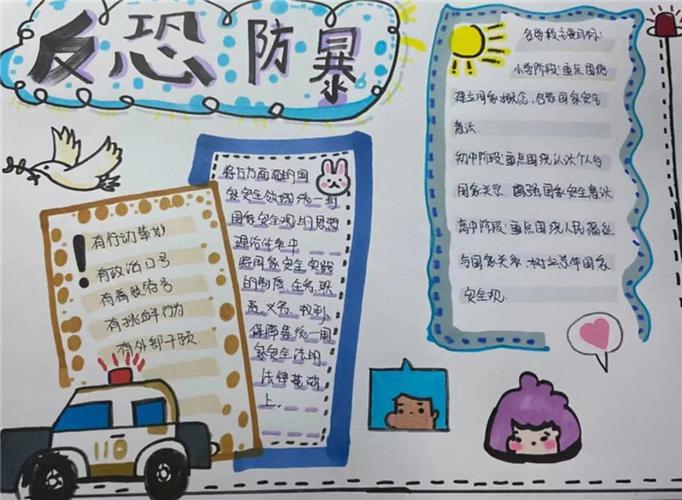 反恐防暴
有行动策划
有政治口号
有着装符号
有挑衅行为
有外部干预
将方方面面的国
家安全领域统一到
国家安全观的思想
理论体系中
将国家安全实践
的制度、任务、职
责、义务、权利
保障等统一用
家安全法的
法律基础
上.
各学段主要目标:
小学阶段:重点围绕
建立国家概念,启蒙国家安全
意识
初中阶段:重点围绕认识个人与
国家关系,增强国家安全意识
高中阶段:重点围绕人民福祉
与国家关系,树立总体国家
安全观.
110